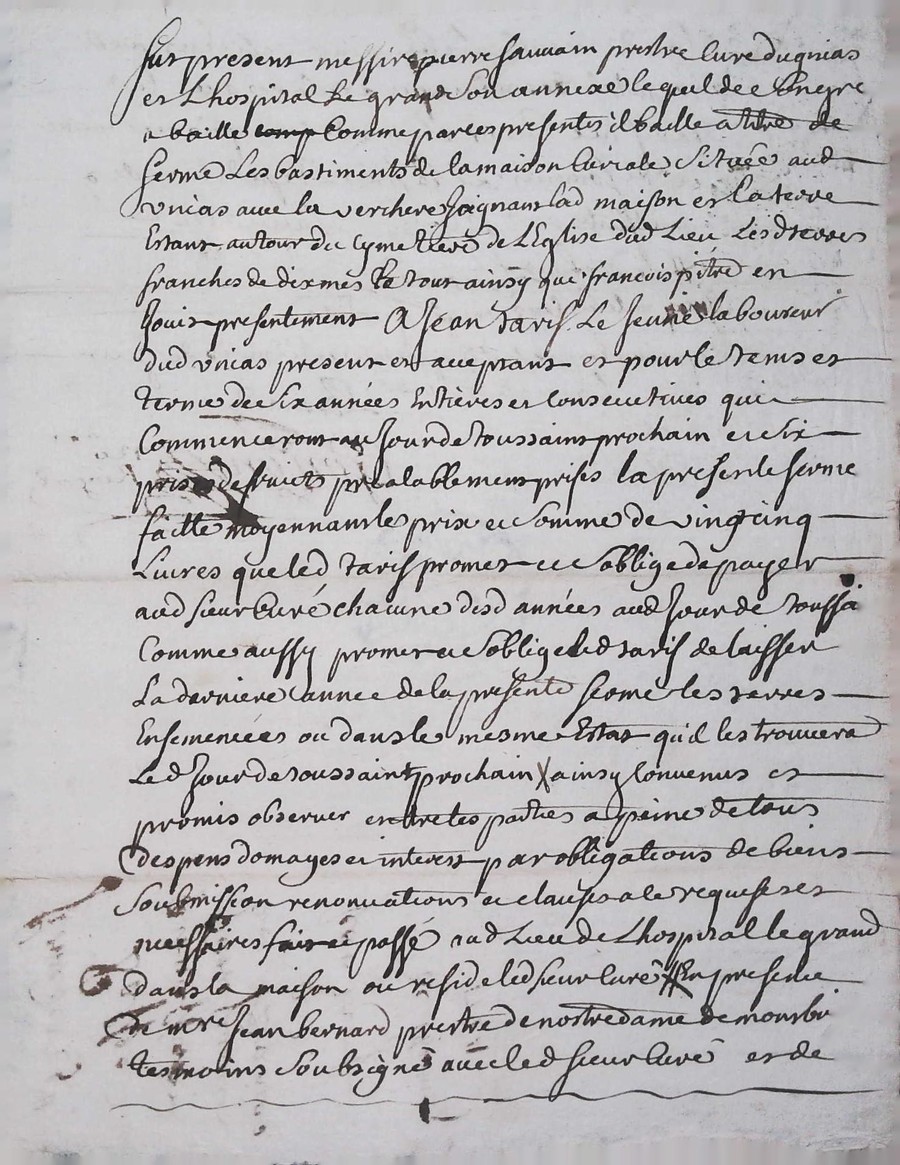 fut present messire pierre sauvain prestre Curé dugnias
et Lhospital Le grand son annexe lequel de e
a baillé comp Comme par ces presentes il baille a tiltre de
ferme Les bastiments de la maison Curiale située aud
unias avec la verchere joignant lad maison et la terre
Estant autour du cymetiere de LEglise dud Lieu Lesd terres
franches de dixmes Le tout ainsy que françois pitre en
Jouit presentement A Jean tarif Le Jeune laboureur
dud unias present et acceptant et pour le tems et
terme de six années Entières et Consecutives qui
Commenceront au Jour de toussaint prochain et six
prises de fruicts prealablement prises la presente ferme
faitte moyennant le prix et somme de vingt cinq
Livres que led tarif promet et s'oblige de payer
aud sieur Curé chacune desd années aud Jour de toussa
Comme aussy promet et soblige led tarif de laisser
La derniere année de la presente ferme les terres
Ensemencées ou dans le mesme Estat qu'il les trouvera
Led Jour de toussaint prochain X ainsy Convenus et
promis observer entre les parties a peine de tous
despens domages et interest par obligations de biens
Soubmission renonciations et clauses a le requises et
necessaires fait et passé aud Lieu de Lhospital le grand
dans la maison ou reside led sieur Curé # En presence
de mre Jean bernard prestre de nostre dame de montbr
tesmoins Soubsigné avec led sieur Curé et de